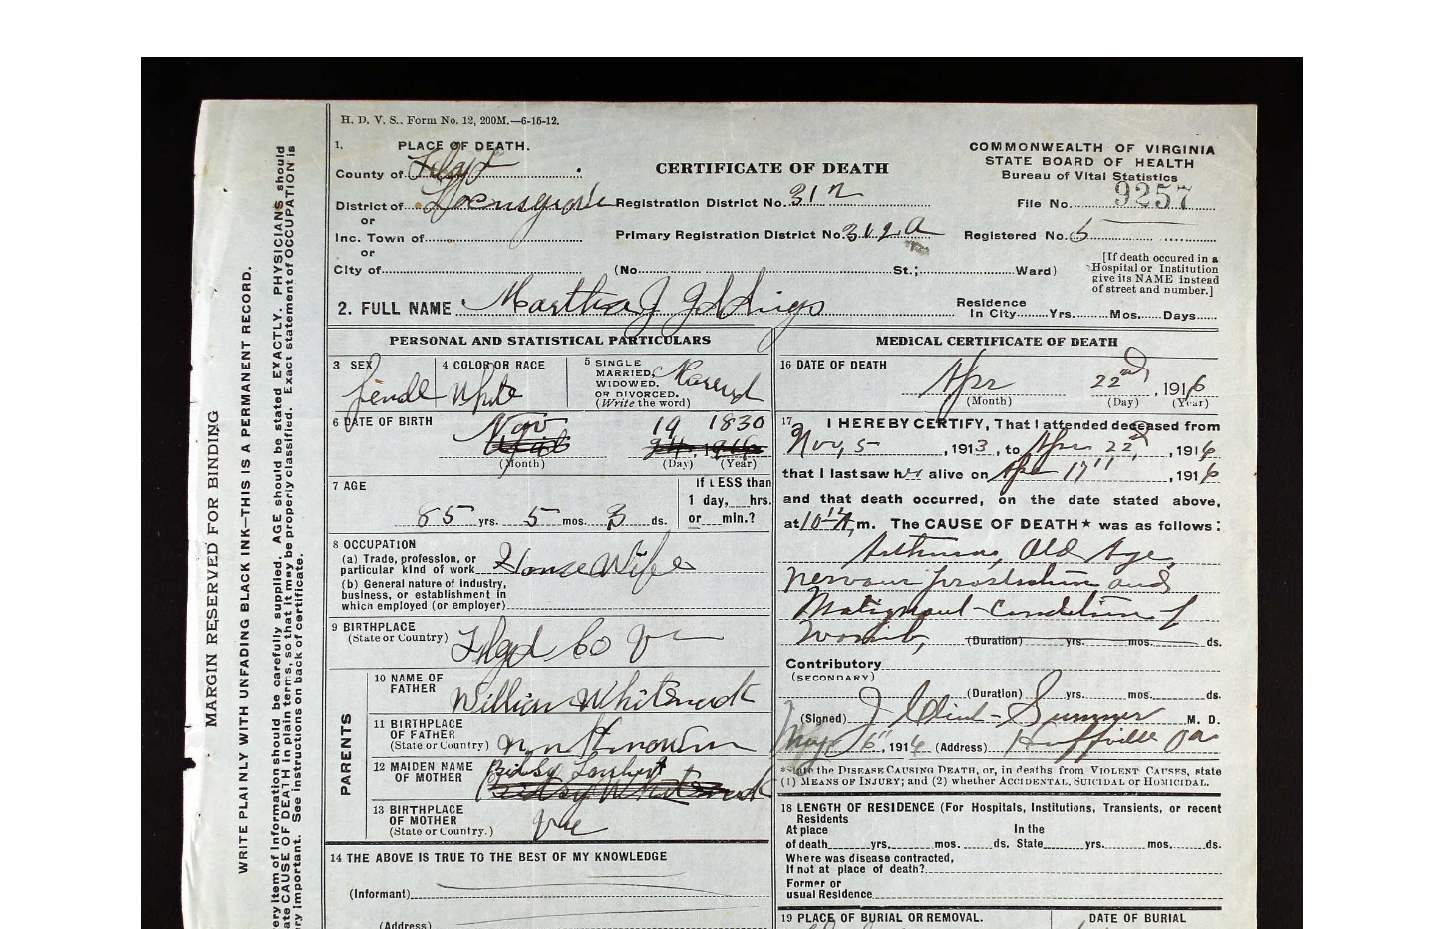 H. D. V. S.. Form No. 12, 200M.—6-15-12.
1. PLACE OF DEATH.
County of Floyd
District of Locust grove
or
Inc. Town of
or
City of
CERTIFICATE OF DEATH
Registration District No. 312
Primary Registration District No. 312 a
(No. St.; Ward)
COMMONWEALTH OF VIRGINIA
STATE BOARD OF HEALTH
Bureau of Vital Statistics
File No. 9257
Registered No. 5
[If death occured in a
Hospital or Institution
give its NAME instead
of street and number.]
2. FULL NAME Martha J
Residence
In City Yrs. Mos. Days
PERSONAL AND STATISTICAL PARTICULARS
3 SEX
female
4 COLOR OR RACE
White
5 SINGLE
MARRIED,
WIDOWED,
OR DIVORCED.
(Write the word)
6 DATE OF BIRTH
Nov 19 1830
(Month) (Day) (Year)
7 AGE
85 yrs. 5 mos. 3 ds.
If LESS than
1 day, hrs.
or min.?
8 OCCUPATION
(a) Trade, profession, or
particular kind of work House Wife
(b) General nature of industry,
business, or establishment in
which employed (or employer)
9 BIRTHPLACE
(State or Country) Floyd Co Va
PARENTS
10 NAME OF
FATHER
William Whiteneck
11 BIRTHPLACE
OF FATHER
(State or Country)
12 MAIDEN NAME
OF MOTHER
Bidsy
13 BIRTHPLACE
OF MOTHER
(State or Country.)
Va
14 THE ABOVE IS TRUE TO THE BEST OF MY KNOWLEDGE
(Informant)
(Address)
MEDICAL CERTIFICATE OF DEATH
16 DATE OF DEATH
Apr 22nd, 1916
(Month) (Day) (Year)
17 I HEREBY CERTIFY, That I attended deceased from
Nov, 5, 1913, to Apr 22nd, 1916
that I last saw her alive on Apr 17", 1916
and that death occurred, on the date stated above,
at 10 A, m. The CAUSE OF DEATH★ was as follows:
Asthma, Old Age,
nervous prostration and
Malignant Condition of
Womb, (Duration) yrs. mos. ds.
Contributory
(SECONDARY)
(Duration) yrs. mos. ds.
(Signed) J Clint Sumner M. D.
May 6", 1916 (Address) Huffville Va
*State the DISEASE CAUSING DEATH, or, in deaths from VIOLENT CAUSES, state
(1) MEANS OF INJURY; and (2) whether ACCIDENTAL, SUICIDAL or HOMICIDAL.
18 LENGTH OF RESIDENCE (For Hospitals, Institutions, Transients, or recent
Residents
At place In the
of death yrs. mos. ds. State yrs. mos. ds.
Where was disease contracted,
If not at place of death?
Former or
usual Residence
19 PLACE OF BURIAL OR REMOVAL. DATE OF BURIAL
MARGIN RESERVED FOR BINDING
WRITE PLAINLY WITH UNFADING BLACK INK—THIS IS A PERMANENT RECORD.
ery item of information should be carefully supplied. AGE should be stated EXACTLY. PHYSICIANS should
ate CAUSE OF DEATH in plain terms, so that it may be properly classified. Exact statement of OCCUPATION is
ry important. See instructions on back of certificate.